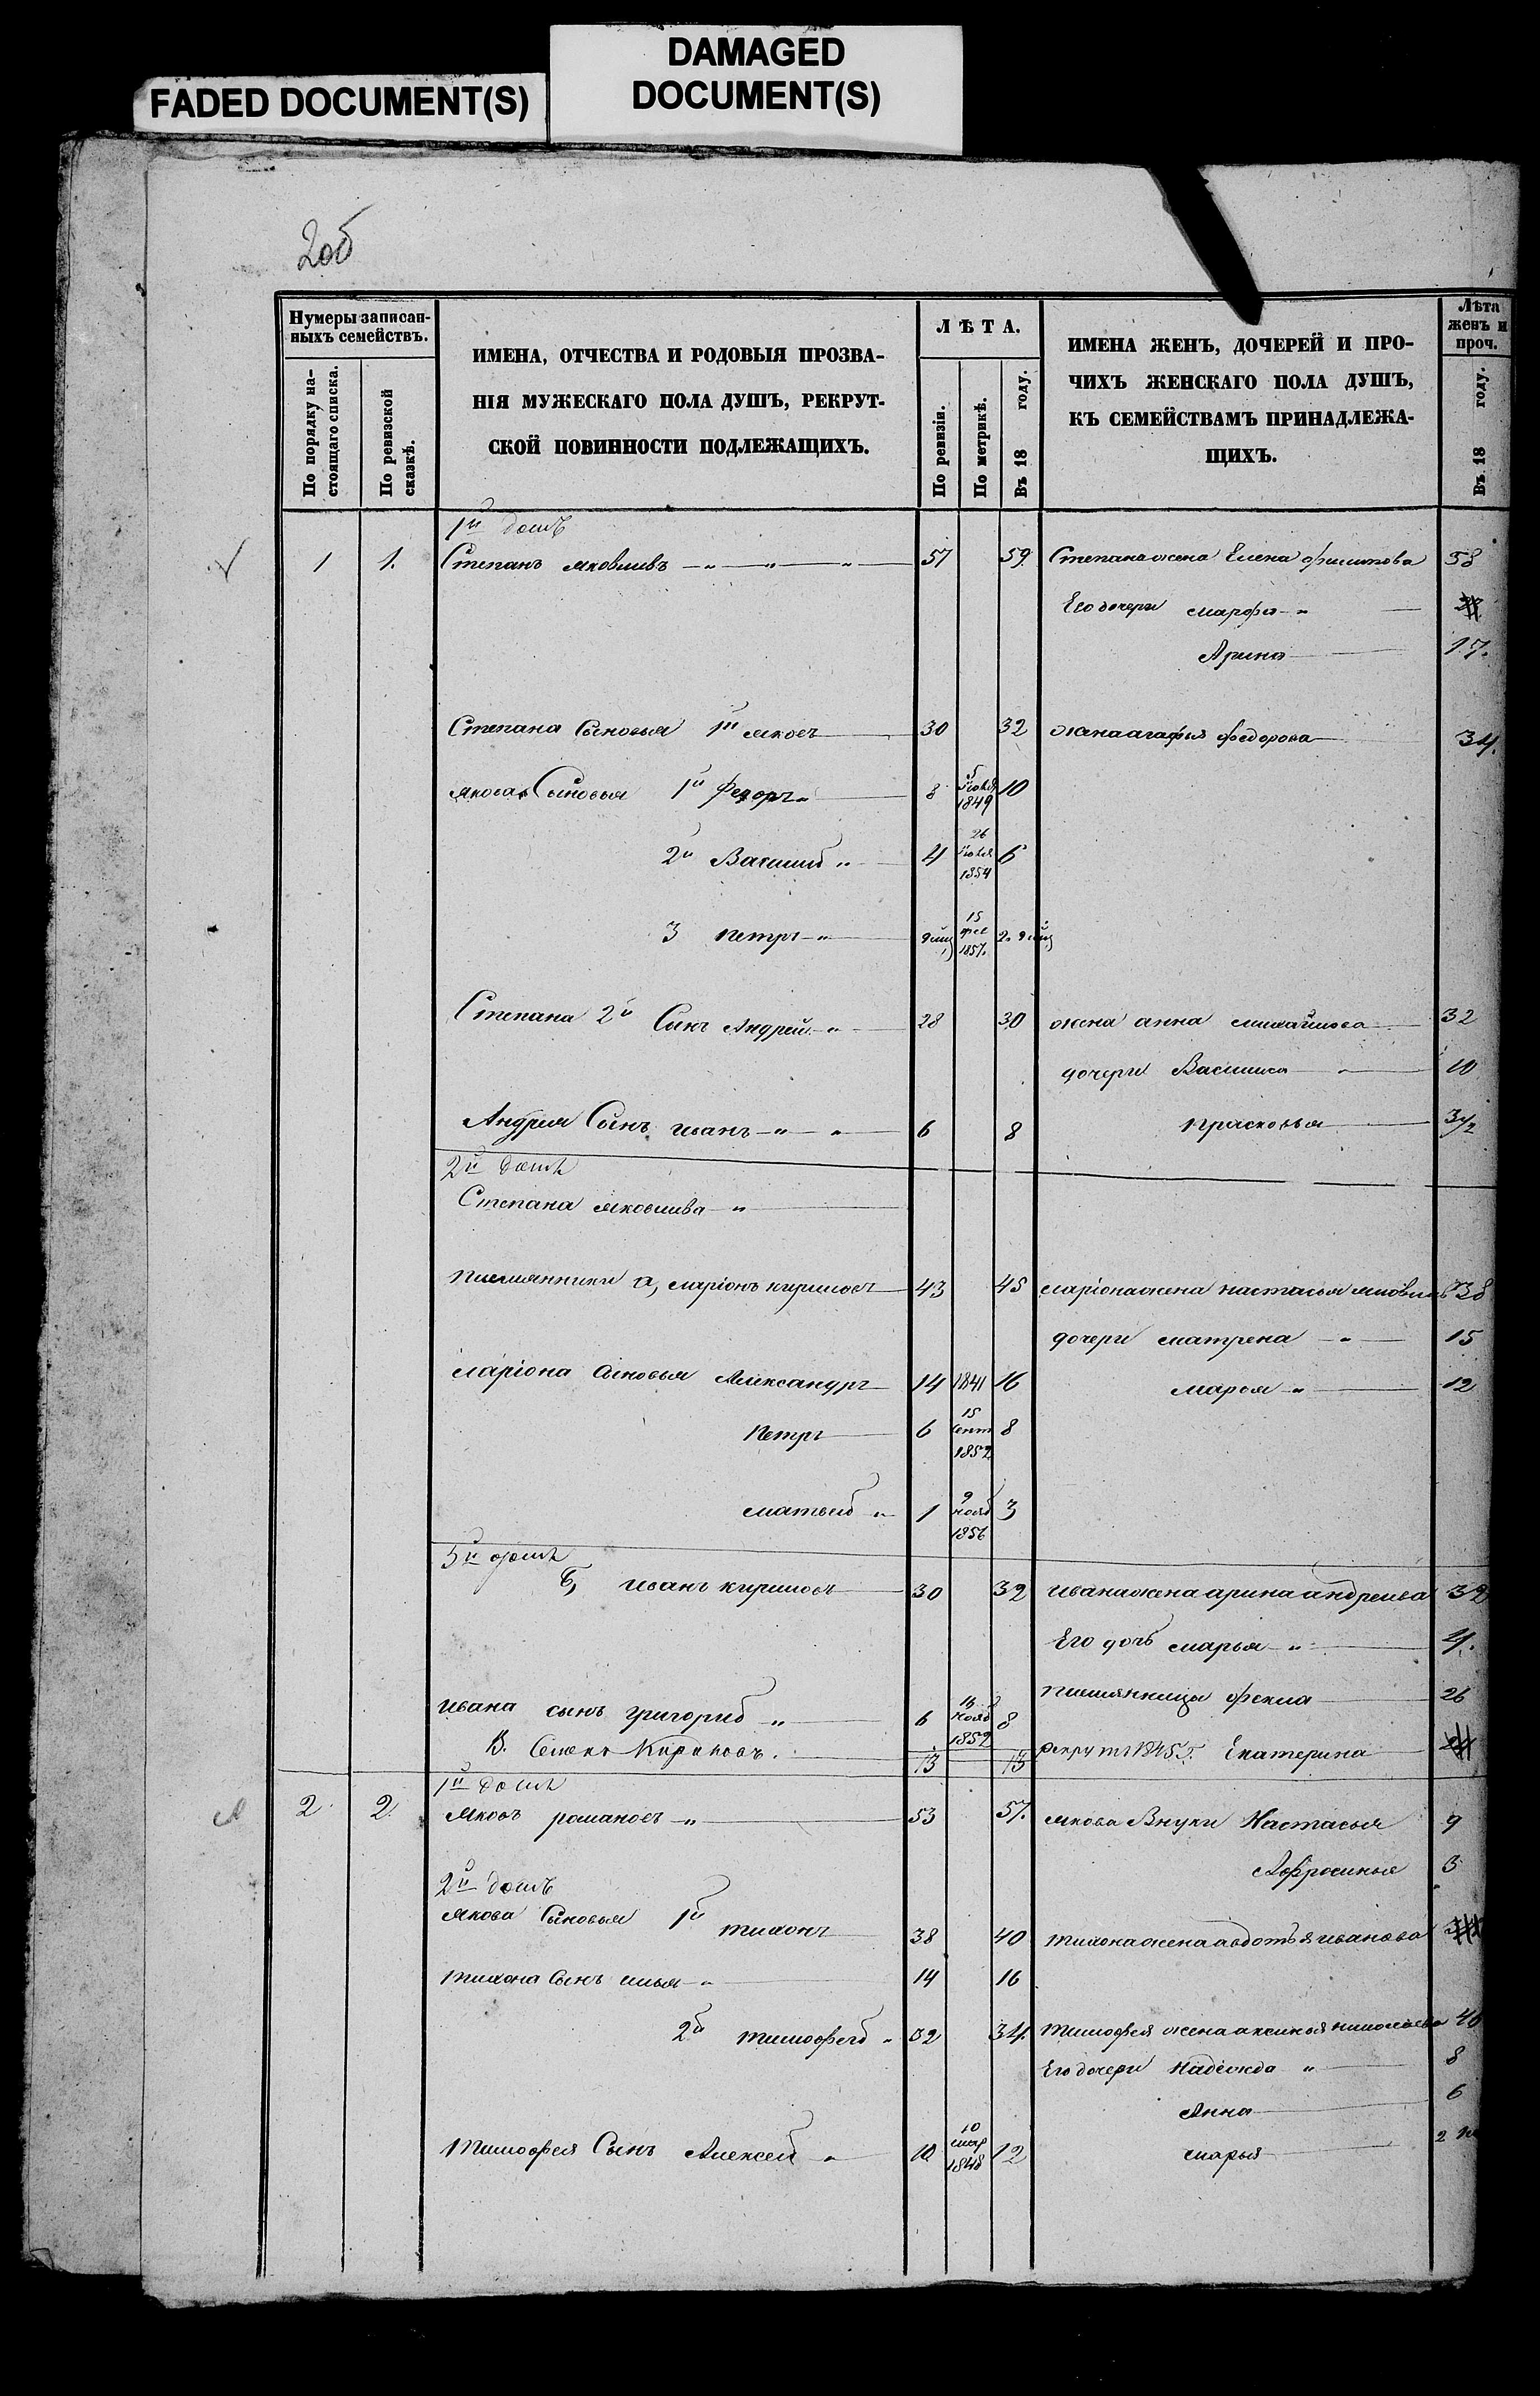 FADED DOCUMENT(S)
DAMAGED
DOCUMENT(S)
2об
Нумеры записан-
ныхъ семействъ.
По порядку на-
стоящаго списка.
По ревизской
сказкѣ.
ИМЕНА, ОТЧЕСТВА И РОДОВЫЯ ПРОЗВА-
НІЯ МУЖЕСКАГО ПОЛА ДУШЪ, РЕКРУТ-
СКОЙ ПОВИННОСТИ ПОДЛЕЖАЩИХЪ.
ЛѢТА.
По ревизіи.
По метрикѣ.
Въ 18 году.
ИМЕНА ЖЕНЪ, ДОЧЕРЕЙ И ПРО-
ЧИХЪ ЖЕНСКАГО ПОЛА ДУШЪ,
КЪ СЕМЕЙСТВАМЪ ПРИНАДЛЕЖА-
ЩИХЪ.
Лѣта
женъ и
проч.
Въ 18 году.
1й домъ
1 1. Степанъ яковливъ 57 59. Степана жена Елена филипова 58
Его дочери марфа
Арина 17.
Степана Сыновья 1й яковъ 30 32 жена агафья федорова 34.
якова Сыновья 1й Федоръ 8 5 1849 10
2й Василий 4 26 1854 6
3 петръ 9 мц 15 фев 1857. 2. 9 мц
Степана 2й Сынъ Андрей 28 30 жена анна михайлова 32
дочери Василиса 10
Андрея Сынъ иванъ 6 8 прасковья 3 1/2
2й домъ
Степана яковлива
племянники а, ларіонъ кириловъ 43 45 ларіона жена настасья 38
дочери матрена 15
ларіона сыновья Александръ 14 1841 16 марья 12
Петръ 6 15 сент 1852 8
матвей 1 9 нояб 1856 3
3й домъ
б, иванъ кириловъ 30 32 ивана жена арина андреива 32
Его дочь марья 4.
племянницы фекла 26
ивана сынъ григорий 6 нояб 1852 8
В. Семенъ Кириловъ. 13 15 Екатерина
1й домъ
2 2. яковъ романовъ 53 57. якова Внуки Настасья 9
Афросинья 3
2й домъ
якова Сыновья 1й тихонъ 38 40 тихона жена авдотья иванова
тихона Сынъ илья 14 16
2й тимофей 32 34. тимофея жена аксинья николаева 40
Его дочери надежда 8
Анна 6
тимофея Сынъ Алексей 10 10 мар 1848 12 марья 2